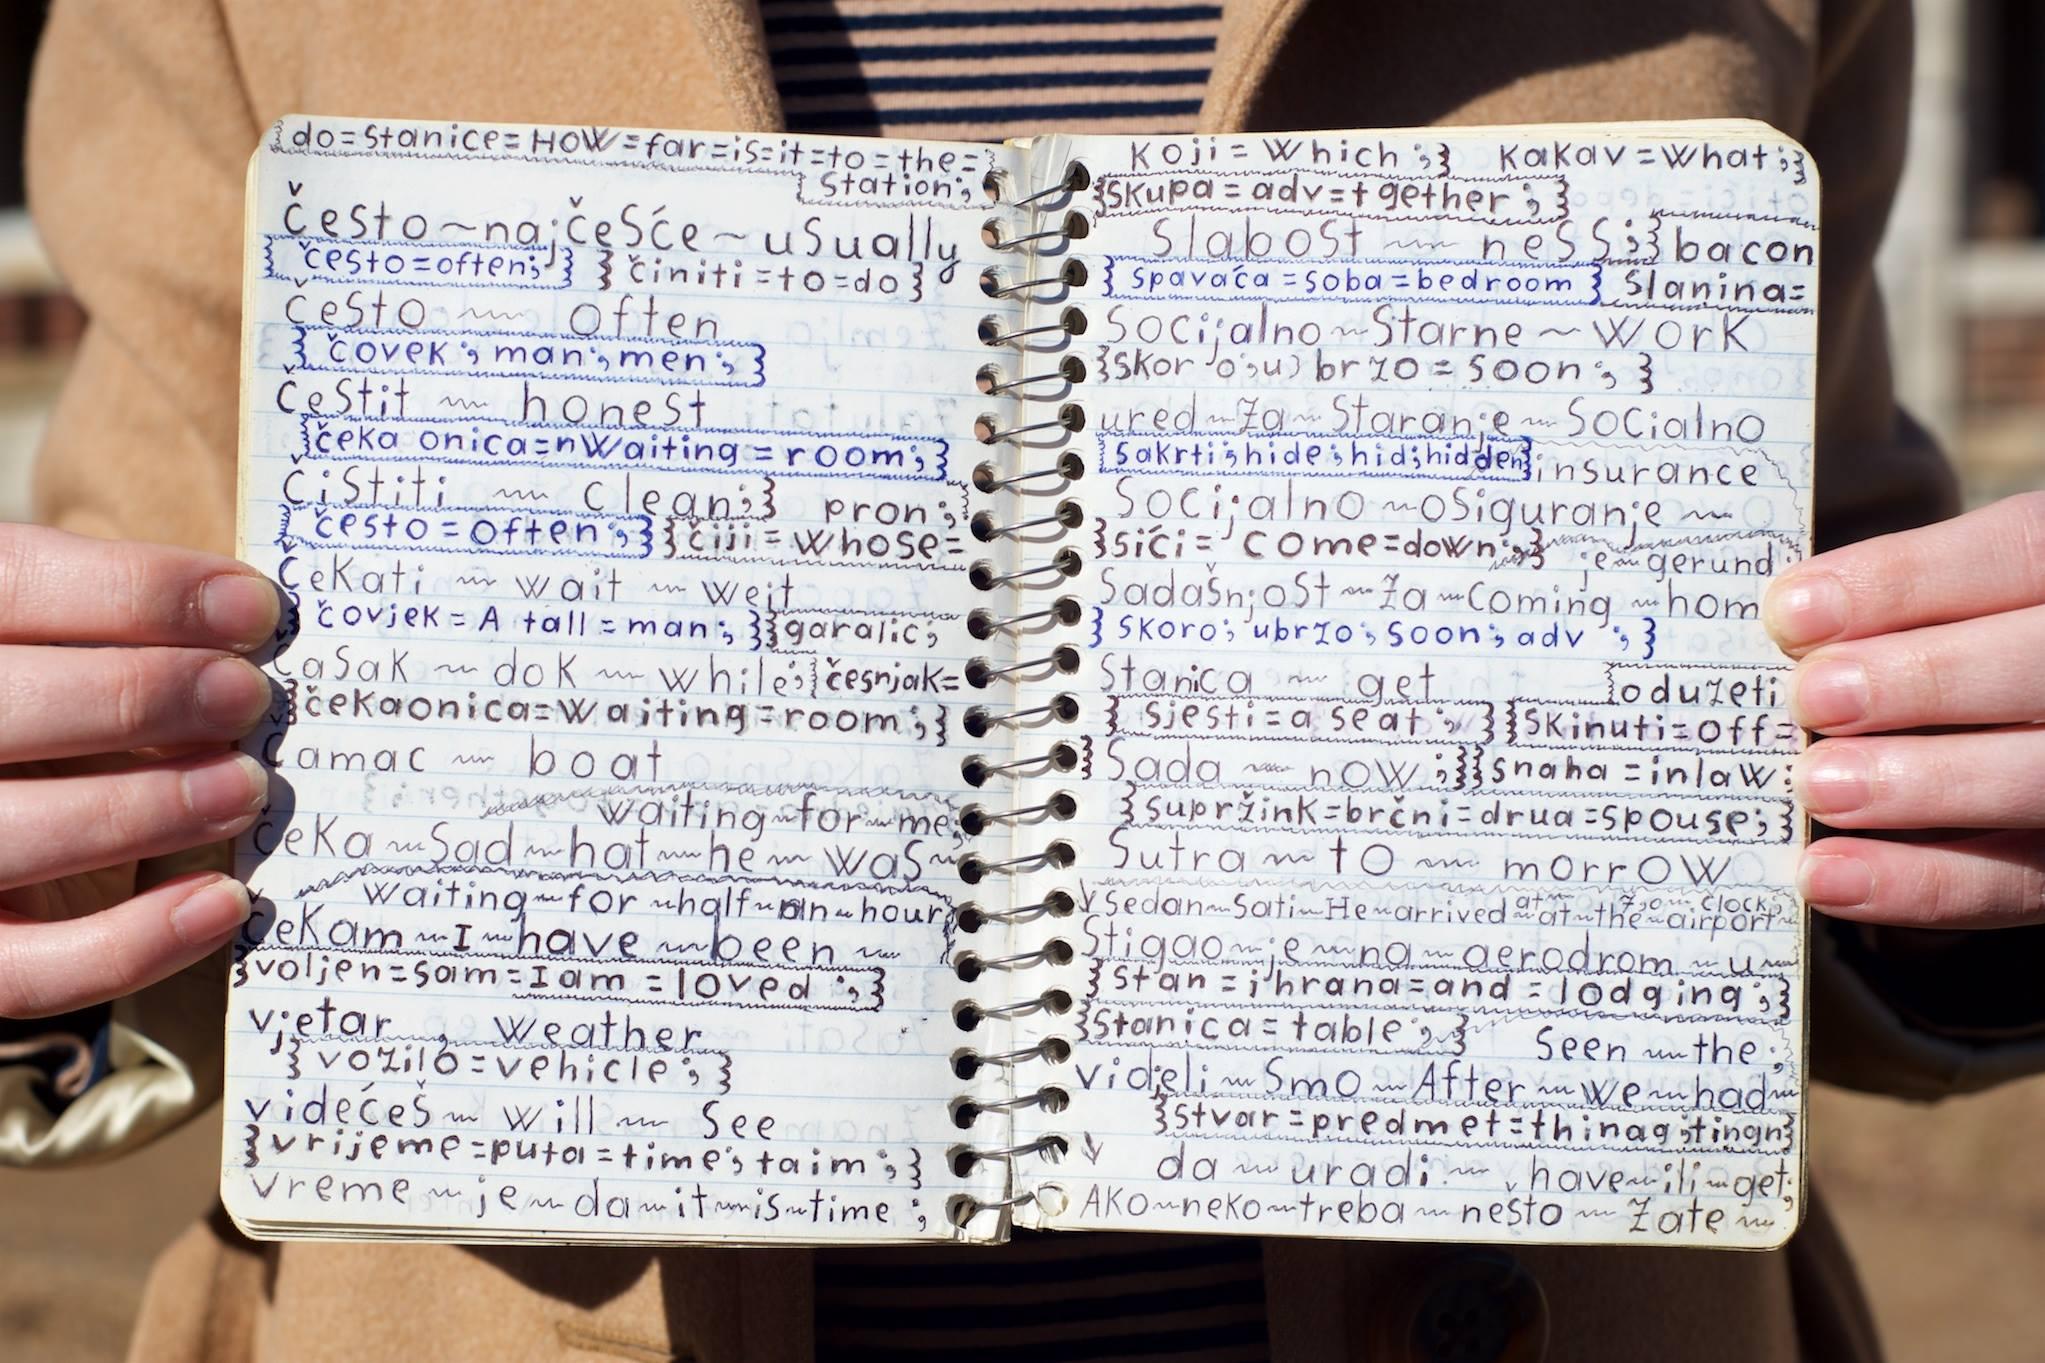 do=stanice=HOW=far=is=it=to=the=
station;
često~najčešće~usually
često=often; činiti=to=do
često ~ often
čovek; man; men;
čestit ~ honest
čeka onica=nwaiting=room;
čistiti ~ clean; pron;
često=often; čiji=whose=
čekati ~ wait ~ weit
čovjek=A tall=man; garalic;
časak ~ dok ~ while; česnjak=
čekaonica=waiting=room;
čamac ~ boat
waiting~for~me;
čeka~sad~hat~he~was~
waiting~for~half~an~hour
čekam~I~have~been~
voljen=sam=I am=loved;
vjetar weather
vozilo=vehicle;
videćeš~will~see
vrijeme=puta=time; taim;
vreme~je~da~it~is~time;
Koji=Which; Kakav=What;
skupa=adv=t gether;
slabost ~ ness; bacon
spavaća=soba=bedroom slanina=
socijalno~starne~work
skor o;u) brzo=soon;
ured~za~staranje~socialno
sakrti;hide;hid;hidden insurance
socijalno~osiguranje~
sići= come=down; je~gerund
sadašnjost~za~coming~hom
skoro; ubrzo; soon; adv ;
stanica ~ get oduzeti
sjesti=a seat; skinuti=off=
Sada ~ now; snaha=inlaw:
supržink=brčni=drua=spouse;
sutra~to~morrow
at~7,00~clock,
sedan~sati~He~arrived~at~the~airport~
Stigao~je~na~aerodrom~u~
stan=ihrana=and=lodging;
stanica=table; Seen~the;
videli~smo~After~we~had~
stvar=predmet=thinag;tingn
da~uradi~have~ili~get;
AKo~neko~treba~nešto~zate~